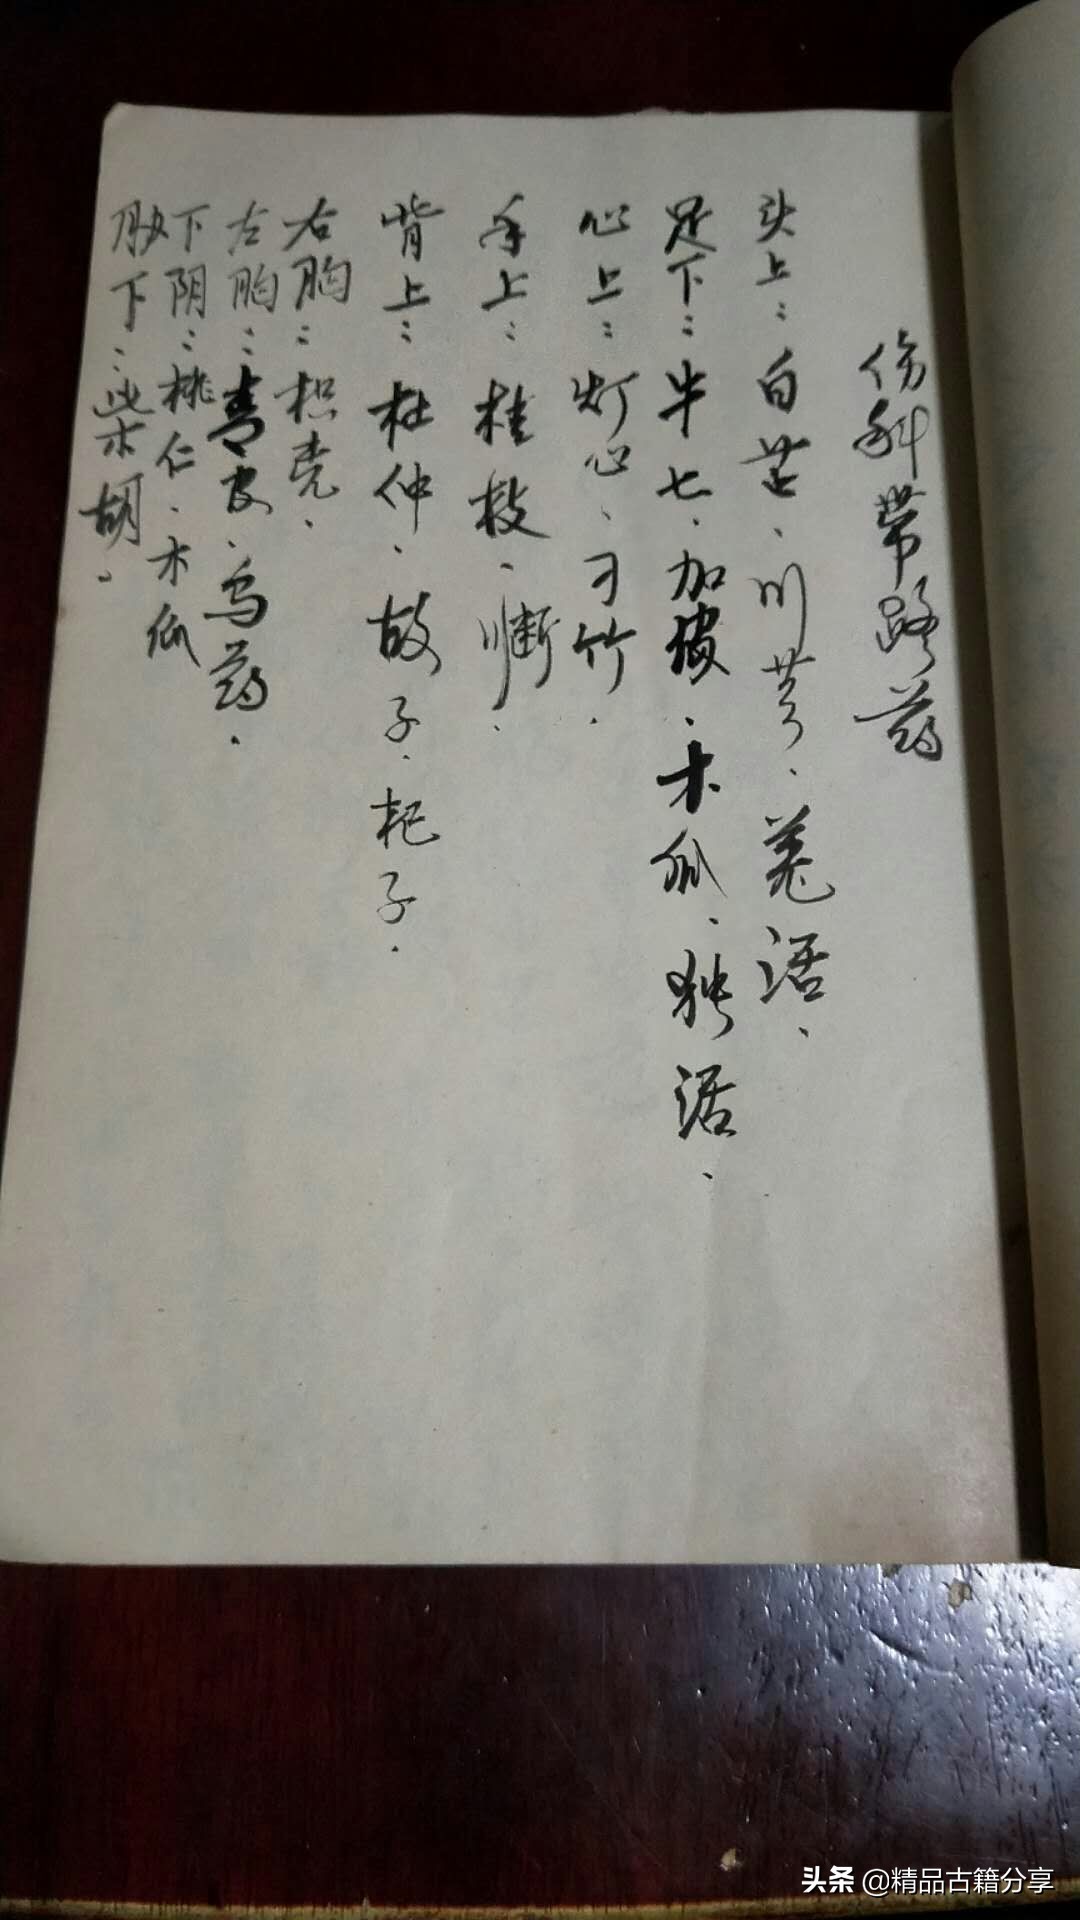 伤科带路药
头上：白芷、川芎、羌活、
足下：牛七、加皮、木瓜、独活、
心上：灯心、寸竹、
手上：桂枝、川断、
背上：杜仲、故子、杞子、
右胸：枳壳、
左胸：青皮、乌药、
下阴：桃仁、木瓜
肋下：柴胡、
头条 @精品古籍分享